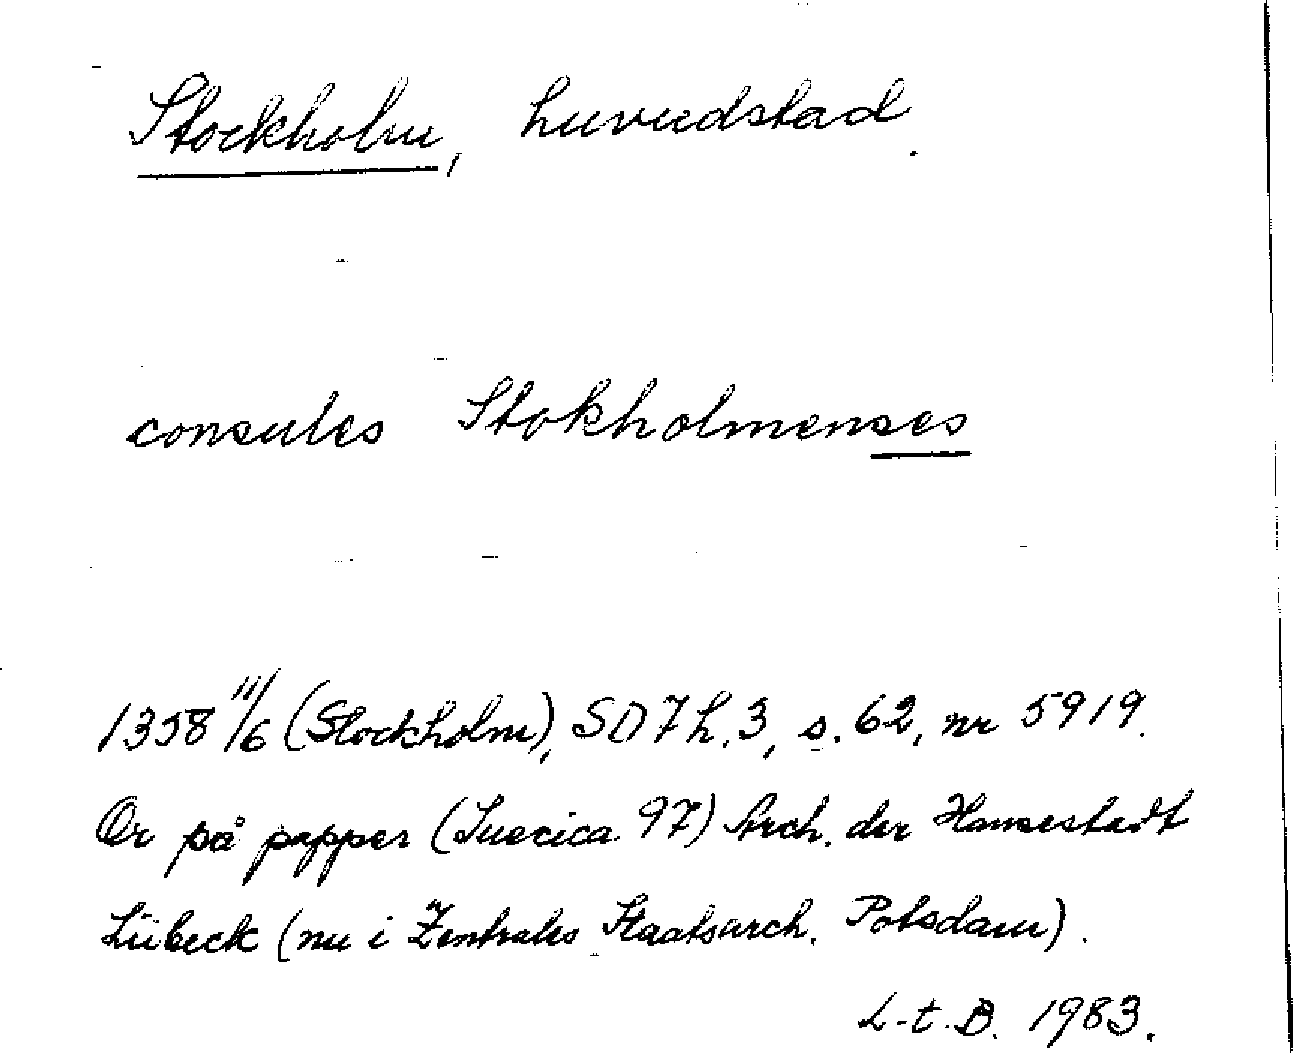 Stockholm, huvudstad.
consules Stokholmenses
1358 11/6 (Stockholm), SD 7 h. 3, s. 62, nr 5919.
Or på papper (Suecica 97) Arch. der Hansestadt
Lübeck (nu i Zentrales Staatsarch. Potsdam).
L-t. B. 1983.